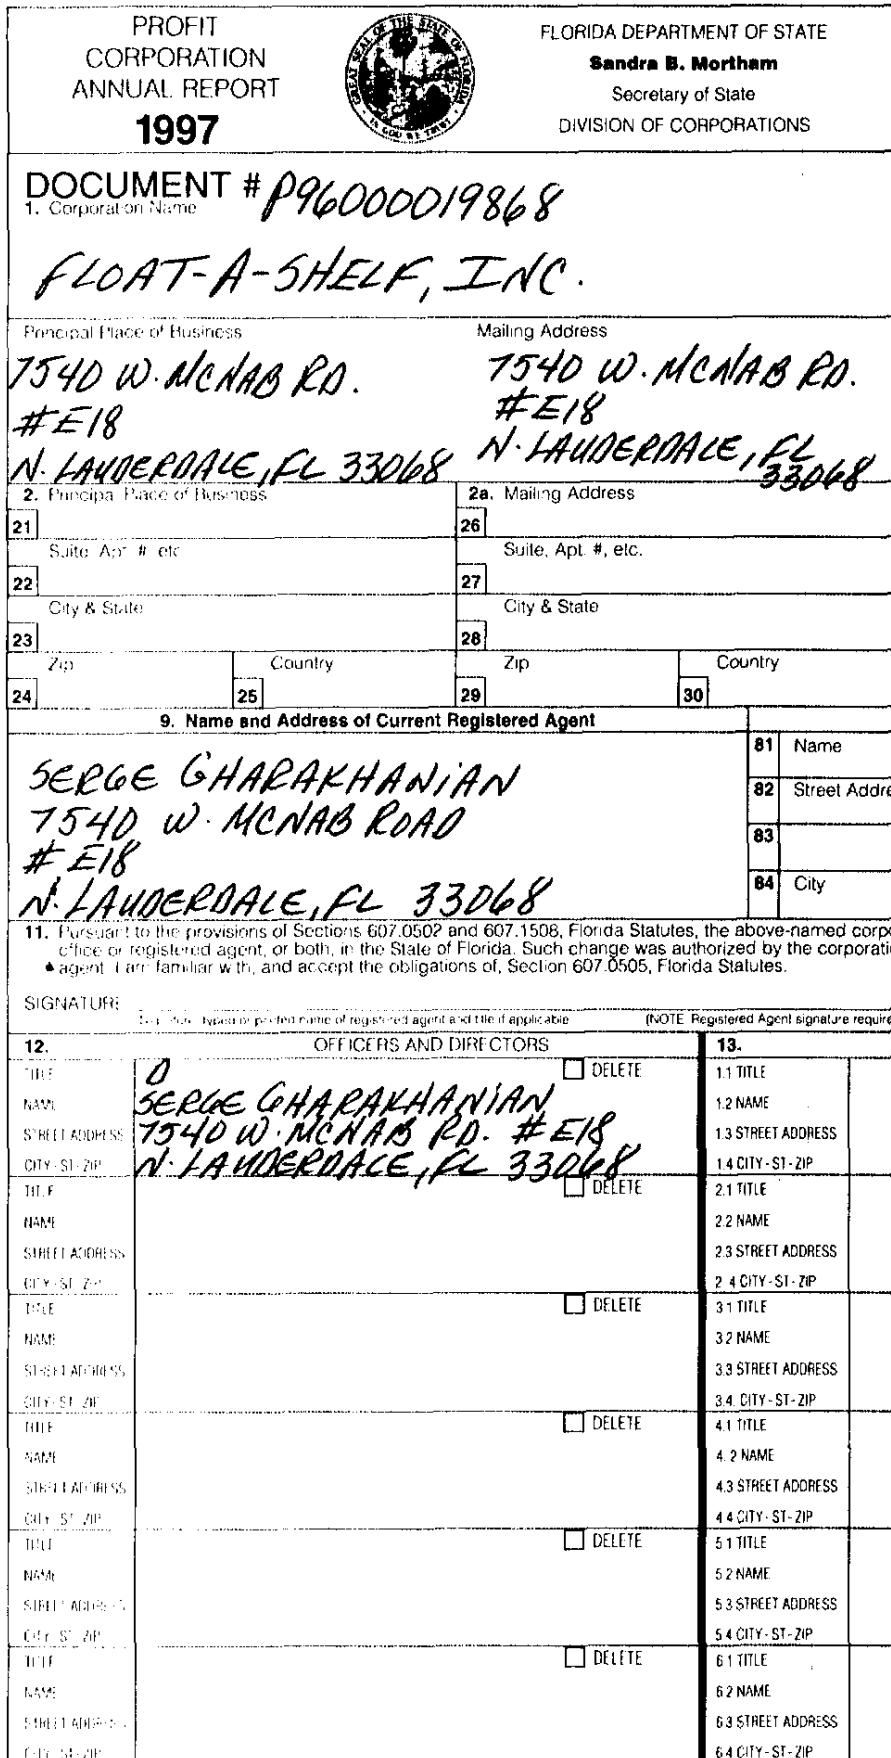 PROFIT
CORPORATION
ANNUAL REPORT
1997
GREAT SEAL OF THE STATE OF FLORIDA
IN GOD WE TRUST
FLORIDA DEPARTMENT OF STATE
Sandra B. Mortham
Secretary of State
DIVISION OF CORPORATIONS
DOCUMENT # P96000019868
1. Corporation Name
FLOAT-A-SHELF, INC.
Principal Place of Business
7540 W. MCNAB RD.
#E18
N. LAUDERDALE, FL 33068
Mailing Address
7540 W. MCNAB RD.
#E18
N. LAUDERDALE, FL
33068
2. Principal Place of Business
21
Suite, Apt. #, etc.
22
City & State
23
Zip
Country
24
25
2a. Mailing Address
26
Suite, Apt. #, etc.
27
City & State
28
Zip
Country
29
30
9. Name and Address of Current Registered Agent
SERGE GHARAKHANIAN
7540 W. MCNAB ROAD
# E18
N. LAUDERDALE, FL 33068
81 Name
82 Street Addre
83
84 City
11. Pursuant to the provisions of Sections 607.0502 and 607.1508, Florida Statutes, the above-named corpo
office or registered agent, or both, in the State of Florida. Such change was authorized by the corporati
agent. I am familiar with, and accept the obligations of, Section 607.0505, Florida Statutes.
SIGNATURE
Signature, typed or printed name of registered agent and title if applicable
(NOTE: Registered Agent signature require
12. OFFICERS AND DIRECTORS
13.
TITLE D DELETE
NAME SERGE GHARAKHANIAN
STREET ADDRESS 7540 W. MCNAB RD. #E18
CITY-ST-ZIP N. LAUDERDALE, FL 33068
1.1 TITLE
1.2 NAME
1.3 STREET ADDRESS
1.4 CITY-ST-ZIP
TITLE DELETE
NAME
STREET ADDRESS
CITY-ST-ZIP
2.1 TITLE
2.2 NAME
2.3 STREET ADDRESS
2.4 CITY-ST-ZIP
TITLE DELETE
NAME
STREET ADDRESS
CITY-ST-ZIP
3.1 TITLE
3.2 NAME
3.3 STREET ADDRESS
3.4. CITY-ST-ZIP
TITLE DELETE
NAME
STREET ADDRESS
CITY-ST-ZIP
4.1 TITLE
4.2 NAME
4.3 STREET ADDRESS
4.4 CITY-ST-ZIP
TITLE DELETE
NAME
STREET ADDRESS
CITY-ST-ZIP
5.1 TITLE
5.2 NAME
5.3 STREET ADDRESS
5.4 CITY-ST-ZIP
TITLE DELETE
NAME
STREET ADDRESS
CITY-ST-ZIP
6.1 TITLE
6.2 NAME
6.3 STREET ADDRESS
6.4 CITY-ST-ZIP